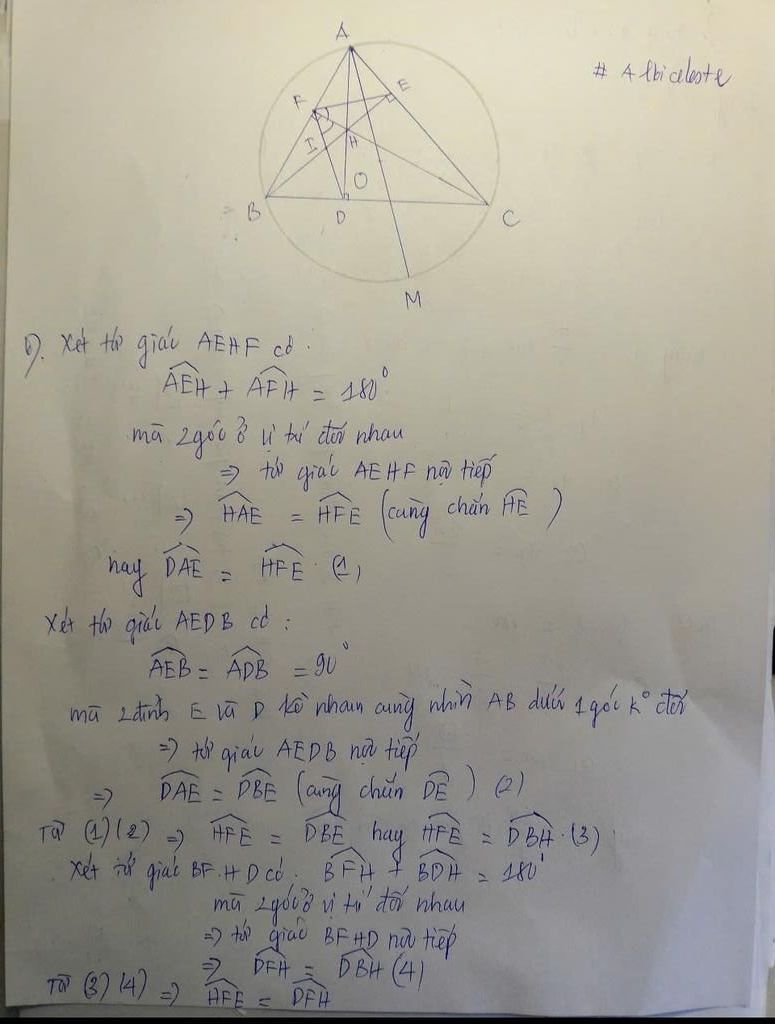 A
# Albiceleste
E
F
I
H
O
B
D
C
M
b). Xét tứ giác AEHF có.
AEH + AFH = 180°
mà 2 góc ở vị trí đối nhau
=> tứ giác AEHF nội tiếp
=> HAE = HFE (cùng chắn HE)
hay DAE = HFE (1)
Xét tứ giác AEDB có:
AEB = ADB = 90°
mà 2 đỉnh E và D kề nhau cùng nhìn AB dưới 1 góc k° đổi
=> tứ giác AEDB nội tiếp
=> DAE = DBE (cùng chắn DE) (2)
Từ (1)(2) => HFE = DBE hay HFE = DBH.(3)
Xét tứ giác BF.HD có. BFH + BDH = 180°
mà 2 góc ở vị trí đối nhau
=> tứ giác BFHD nội tiếp
=> DFH = DBH (4)
Từ (3)(4) => HFE = DFH